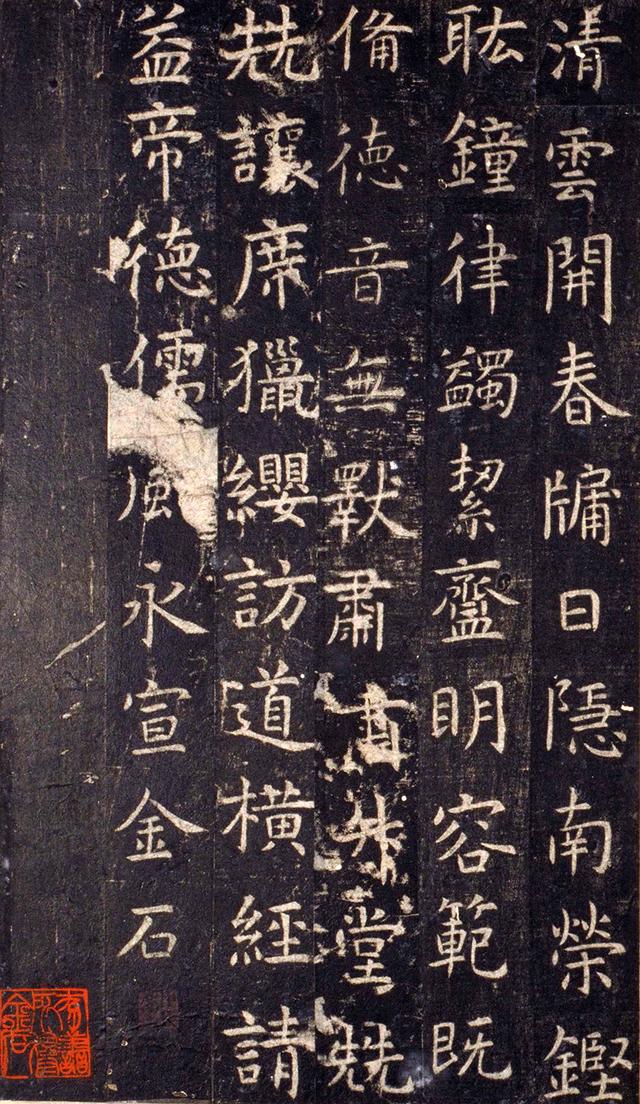 清雲開春牖日隱南榮鏗
耾鐘律蠲絜齍明容範既
備德音無斁肅堂兢
兢讓席獵纓訪道橫經請
益帝德儒風永宣金石